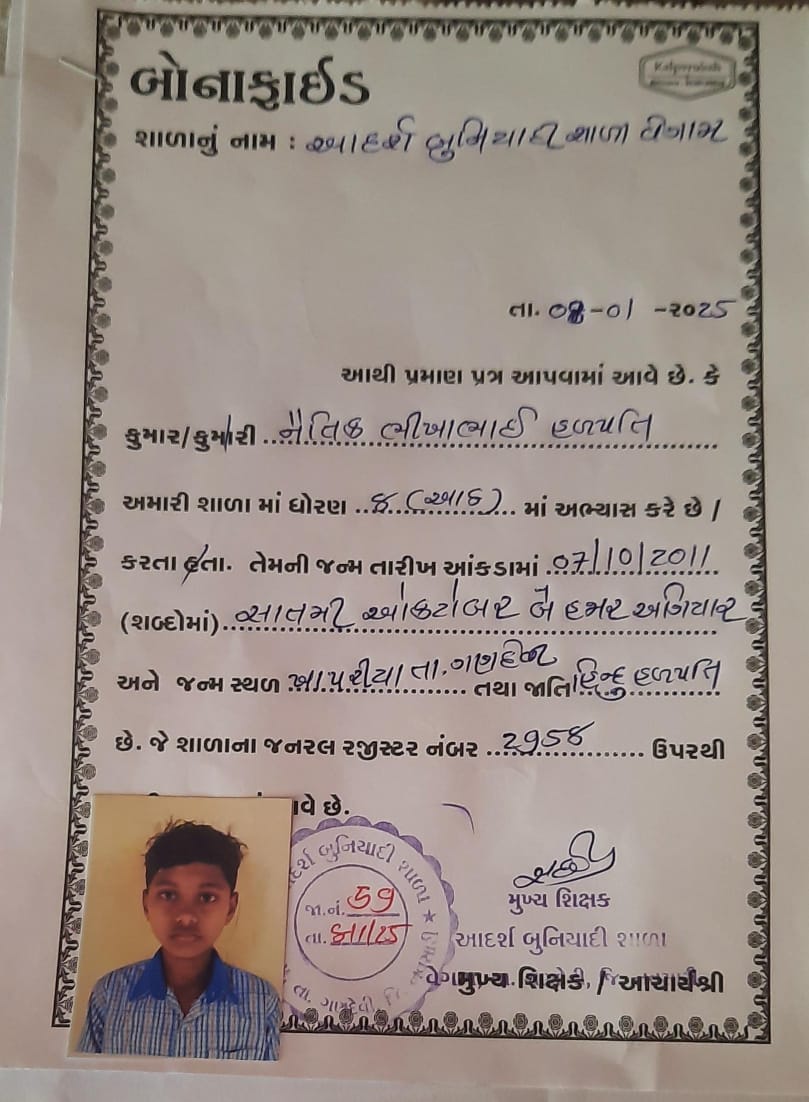 બોનાફાઈડ
Kalpvruksh
શાળાનું નામ : આદર્શ બુનિયાદી શાળા વેગામ
તા. 08-01 -૨૦૨5
આથી પ્રમાણ પત્ર આપવામાં આવે છે. કે
કુમાર/કુમારી નૈતિક ભીખાભાઈ હળપતિ
અમારી શાળા માં ધોરણ ૮ (આઠ) માં અભ્યાસ કરે છે /
કરતા હતા. તેમની જન્મ તારીખ આંકડામાં 07/10/2011
(શબ્દોમાં) સાતમી ઓકટોબર બે હજાર અગિયાર
અને જન્મ સ્થળ ખાપરીયા તા. ગણદેવી તથા જાતિ હિન્દુ હળપતિ
છે. જે શાળાના જનરલ રજીસ્ટર નંબર 2958 ઉપરથી
આવે છે.
આદર્શ બુનિયાદી શાળા
જા.નં. 59
તા. 8/1/25
તા. ગણદેવી જિ
મુખ્ય શિક્ષક
આદર્શ બુનિયાદી શાળા
મુખ્ય શિક્ષક / આચાર્યશ્રી